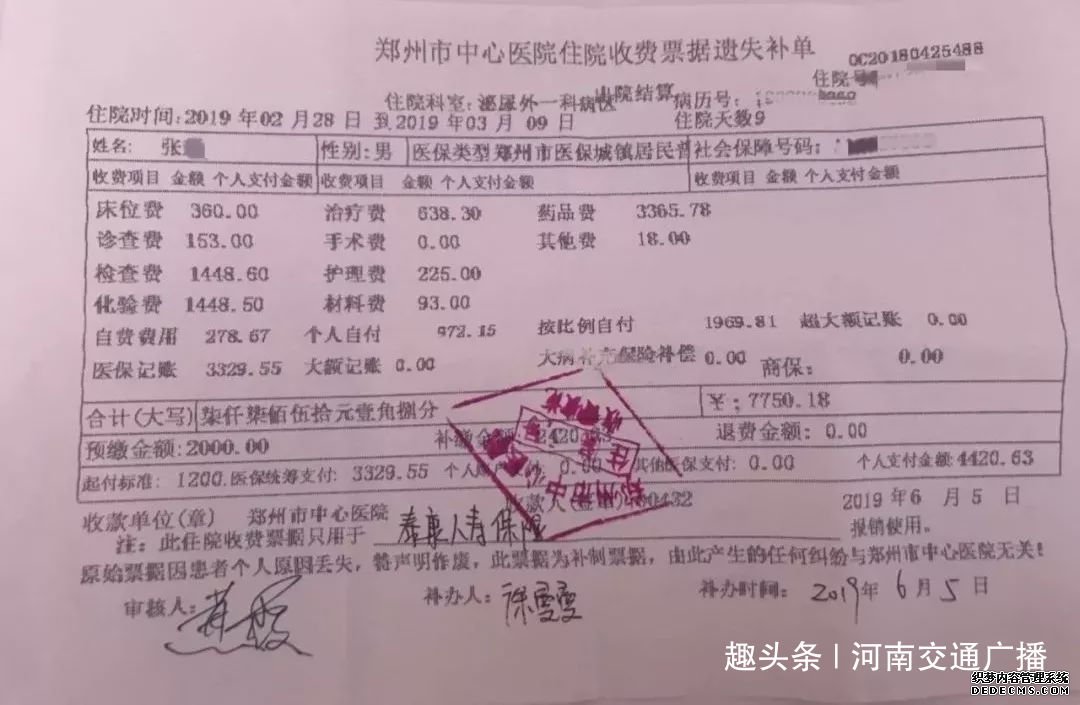 郑州市中心医院住院收费票据遗失补单
OC20180425488
住院号
住院科室:泌尿外一科病区 出院结算 病历号:
住院时间:2019 年 02 月 28 日 到 2019 年 03 月 09 日 住院天数9
姓名: 张 性别:男 医保类型郑州市医保城镇居民普 社会保障号码:
收费项目 金额 个人支付金额 收费项目 金额 个人支付金额 收费项目 金额 个人支付金额
床位费 360.00 治疗费 638.30 药品费 3365.78
诊查费 153.00 手术费 0.00 其他费 18.00
检查费 1448.60 护理费 225.00
化验费 1448.50 材料费 93.00
自费费用 278.67 个人自付 972.15 按比例自付 1969.81 超大额记账 0.00
医保记账 3329.55 大额记账 0.00 大病补充保险补偿 0.00 商保: 0.00
合计(大写) 柒仟柒佰伍拾元壹角捌分 ¥:7750.18
预缴金额:2000.00 补缴金额: 2420.63 退费金额: 0.00
起付标准: 1200.医保统筹支付: 3329.55 个人账户 0.00 其他医保支付: 0.00 个人支付金额:4420.63
收款单位(章) 郑州市中心医院 收款人(签章) 00432 2019 年 6 月 5 日
注: 此住院收费票据只用于 泰康人寿保险 报销使用。
原始票据因患者个人原因丢失, 特声明作废, 此票据为补制票据, 由此产生的任何纠纷与郑州市中心医院无关!
审核人: 补办人: 徐雯雯 补办时间: 2019年 6 月 5 日
趣头条 | 河南交通广播
织梦内容管理系统
DEDECMS.COM